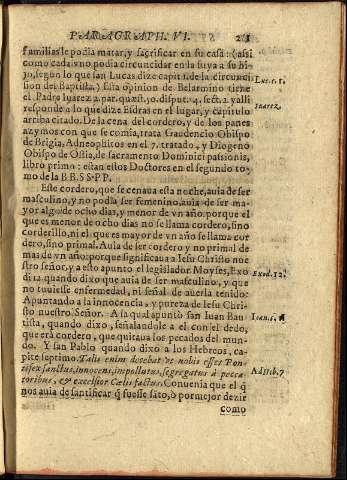 PARAGRAPH. VI. 21
familias le podia matar, y sacrificar en su casa: (assi
como cada vno podia circuncidar en la suya a su hi-
jo, segun lo que san Lucas dize capit. 1. de la circunci
sion del Baptista.) Esta opinion de Belarmino tiene
el Padre Iuarez 2. par. quæst. 30. disput. 4. sect. 2. y alli
responde a lo que dize Esdras en el lugar, y capitulo
arriba citado. De la cena del cordero, y de los panes
azymos con que se comia, trata Gaudencio Obispo
de Brigia, Ad neophitos en el 7. tratado, y Diogeno
Obispo de Ostia, de sacramento Dominici passionis,
libro primo: estan estos Doctores en el segundo to-
mo de la B B. S S. P P.
Este cordero, que se cenaua esta noche, auia de ser
masculino, y no podia ser femenino, auia de ser ma-
yor algo de ocho dias, y menor de vn año. porque el
que es menor de ocho dias no se llama cordero, sino
corderillo, ni el que es mayor de vn año se llama cor
dero, sino primal. Auia de ser cordero y no primal de
mas de vn año: porque significaua a Iesu Christo nue
stro señor, y a esto apunto el legislador Moyses, Exo
di 12 quando dixo que auia de ser masculino, y que
no tuuiesse enfermedad, ni señal de auerla tenido:
Apuntando a la innocencia, y pureza de Iesu Chri-
sto nuestro Señor. A la qual apuntò san Iuan Bau
tista, quando dixo, señalandole a el con el dedo,
que era cordero, que quitaua los pecados del mun-
do. Y san Pablo quando dixo a los Hebreos, ca-
pite septimo. Talis enim decebat vt nobis esset Pon-
tifex sanctus, innocens, impollutus, segregatus à pecca
toribus, & excelsior Cœlis factus. Conuenia que el q̃
nos auia de santificar q̃ fuesse sãto, ò por mejor dezir
como
Luc. c. 1.
Iuarez.
Exod. 12.
Ioan. 1.
Ad Heb. 7